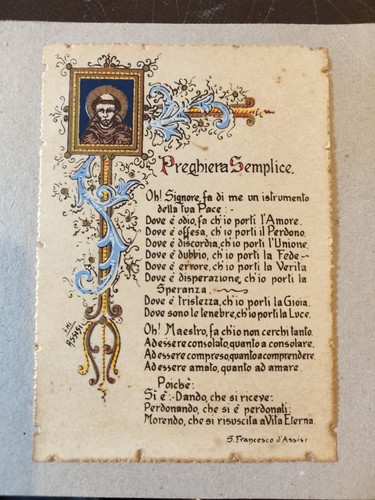 Preghiera Semplice.
Oh! Signore, fa di me un istrumento
della tua Pace: -
Dove è odio, fa ch'io porti l'Amore.
Dove è offesa, ch'io porti il Perdono.
Dove è discordia, ch'io porti l'Unione.
Dove è dubbio, ch'io porti la Fede -
Dove è errore, ch'io porti la Verita
Dove è disperazione, ch'io porti la
Speranza.
Dove è tristezza, ch'io porti la Gioia.
Dove sono le tenebre, ch'io porti la Luce.
Oh! Maestro, fa ch'io non cerchi tanto.
Ad essere consolato, quanto a consolare.
Ad essere compreso, quanto a comprendere.
Ad essere amato, quanto ad amare.
Poichè:
Si è: - Dando, che si riceve:
Perdonando, che si è perdonati;
Morendo, che si risuscita a Vita Eterna.
S. Francesco d'Assisi
ASSISI